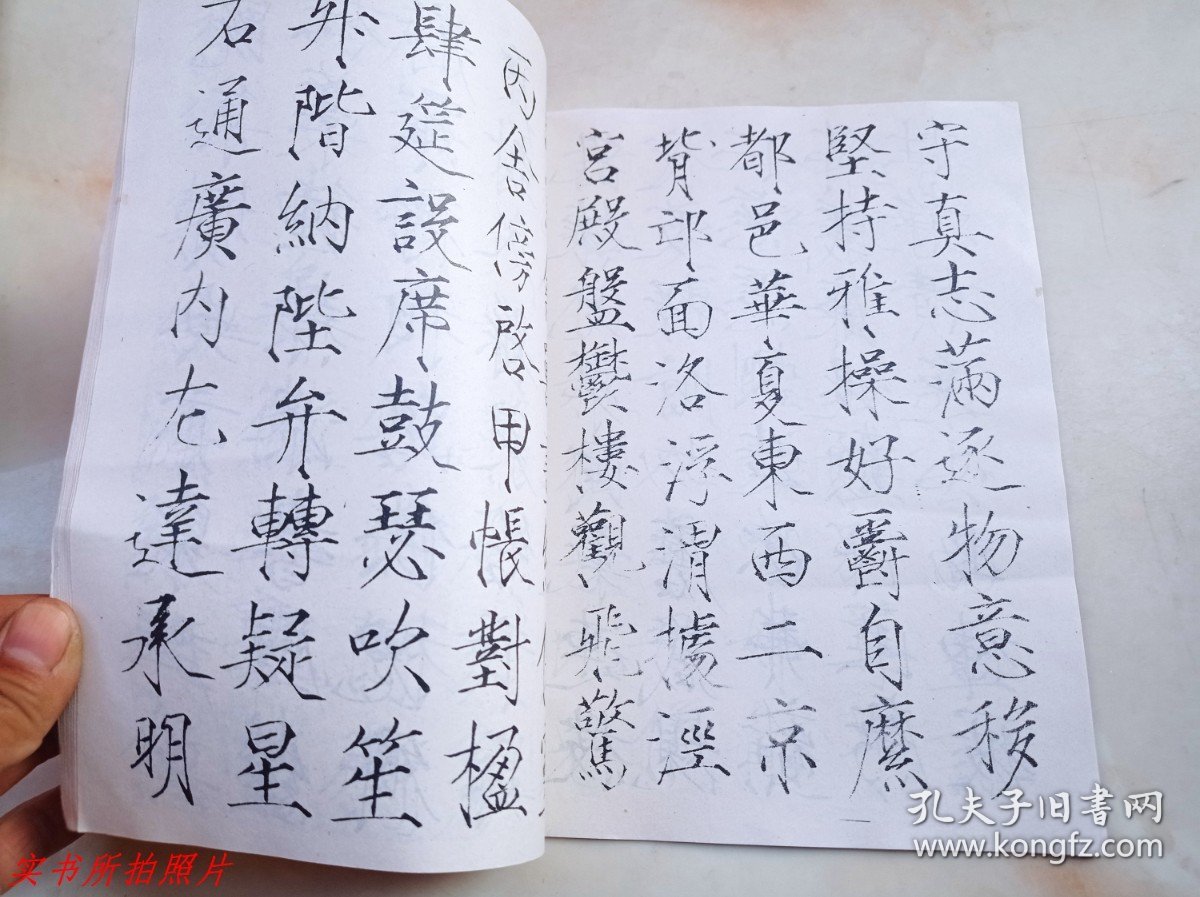 守真志滿逐物意移
堅持雅操好爵自縻
都邑華夏東西二京
背邙面洛浮渭據涇
宮殿盤鬱樓觀飛驚
丙舍傍啓甲帳對楹
肆筵設席鼓瑟吹笙
升階納陛弁轉疑星
右通廣內左達承明
孔夫子旧書网
www.kongfz.com
实书所拍照片